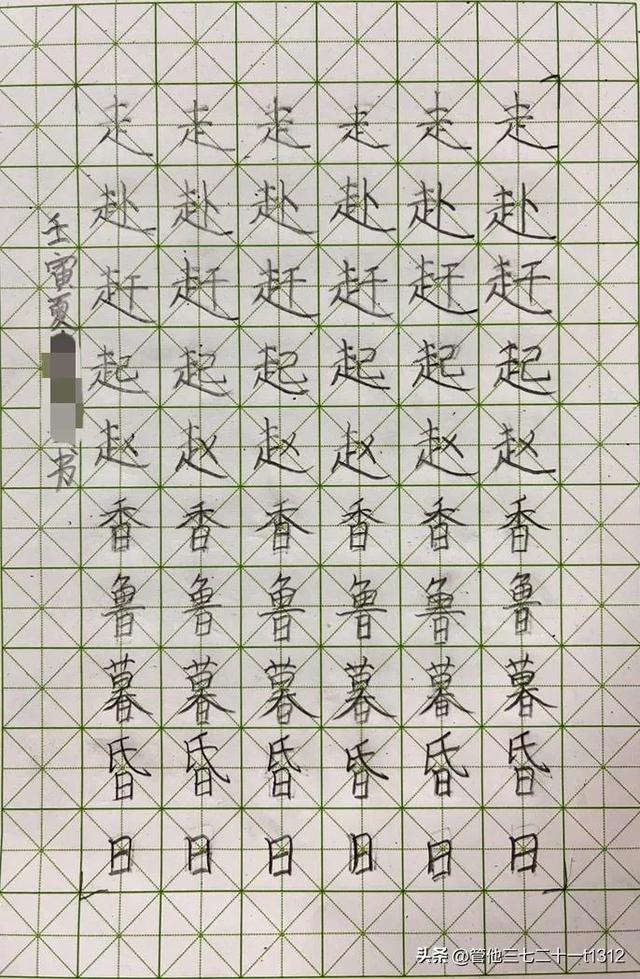 走走走走走走
赴赴赴赴赴赴
赶赶赶赶赶赶
起起起起起起
赵赵赵赵赵赵
香香香香香香
鲁鲁鲁鲁鲁鲁
暮暮暮暮暮暮
昏昏昏昏昏昏
日日日日日日
壬寅夏
书
头条 @管他三七二十一t1312